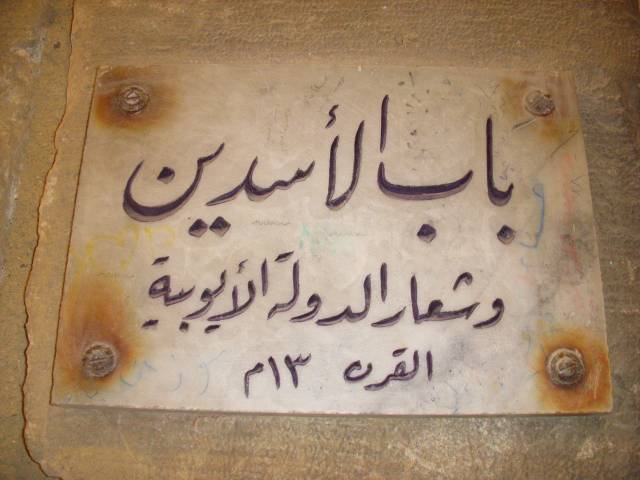 باب الأسدين
وشعار الدولة الأيوبية
القرن ١٣م